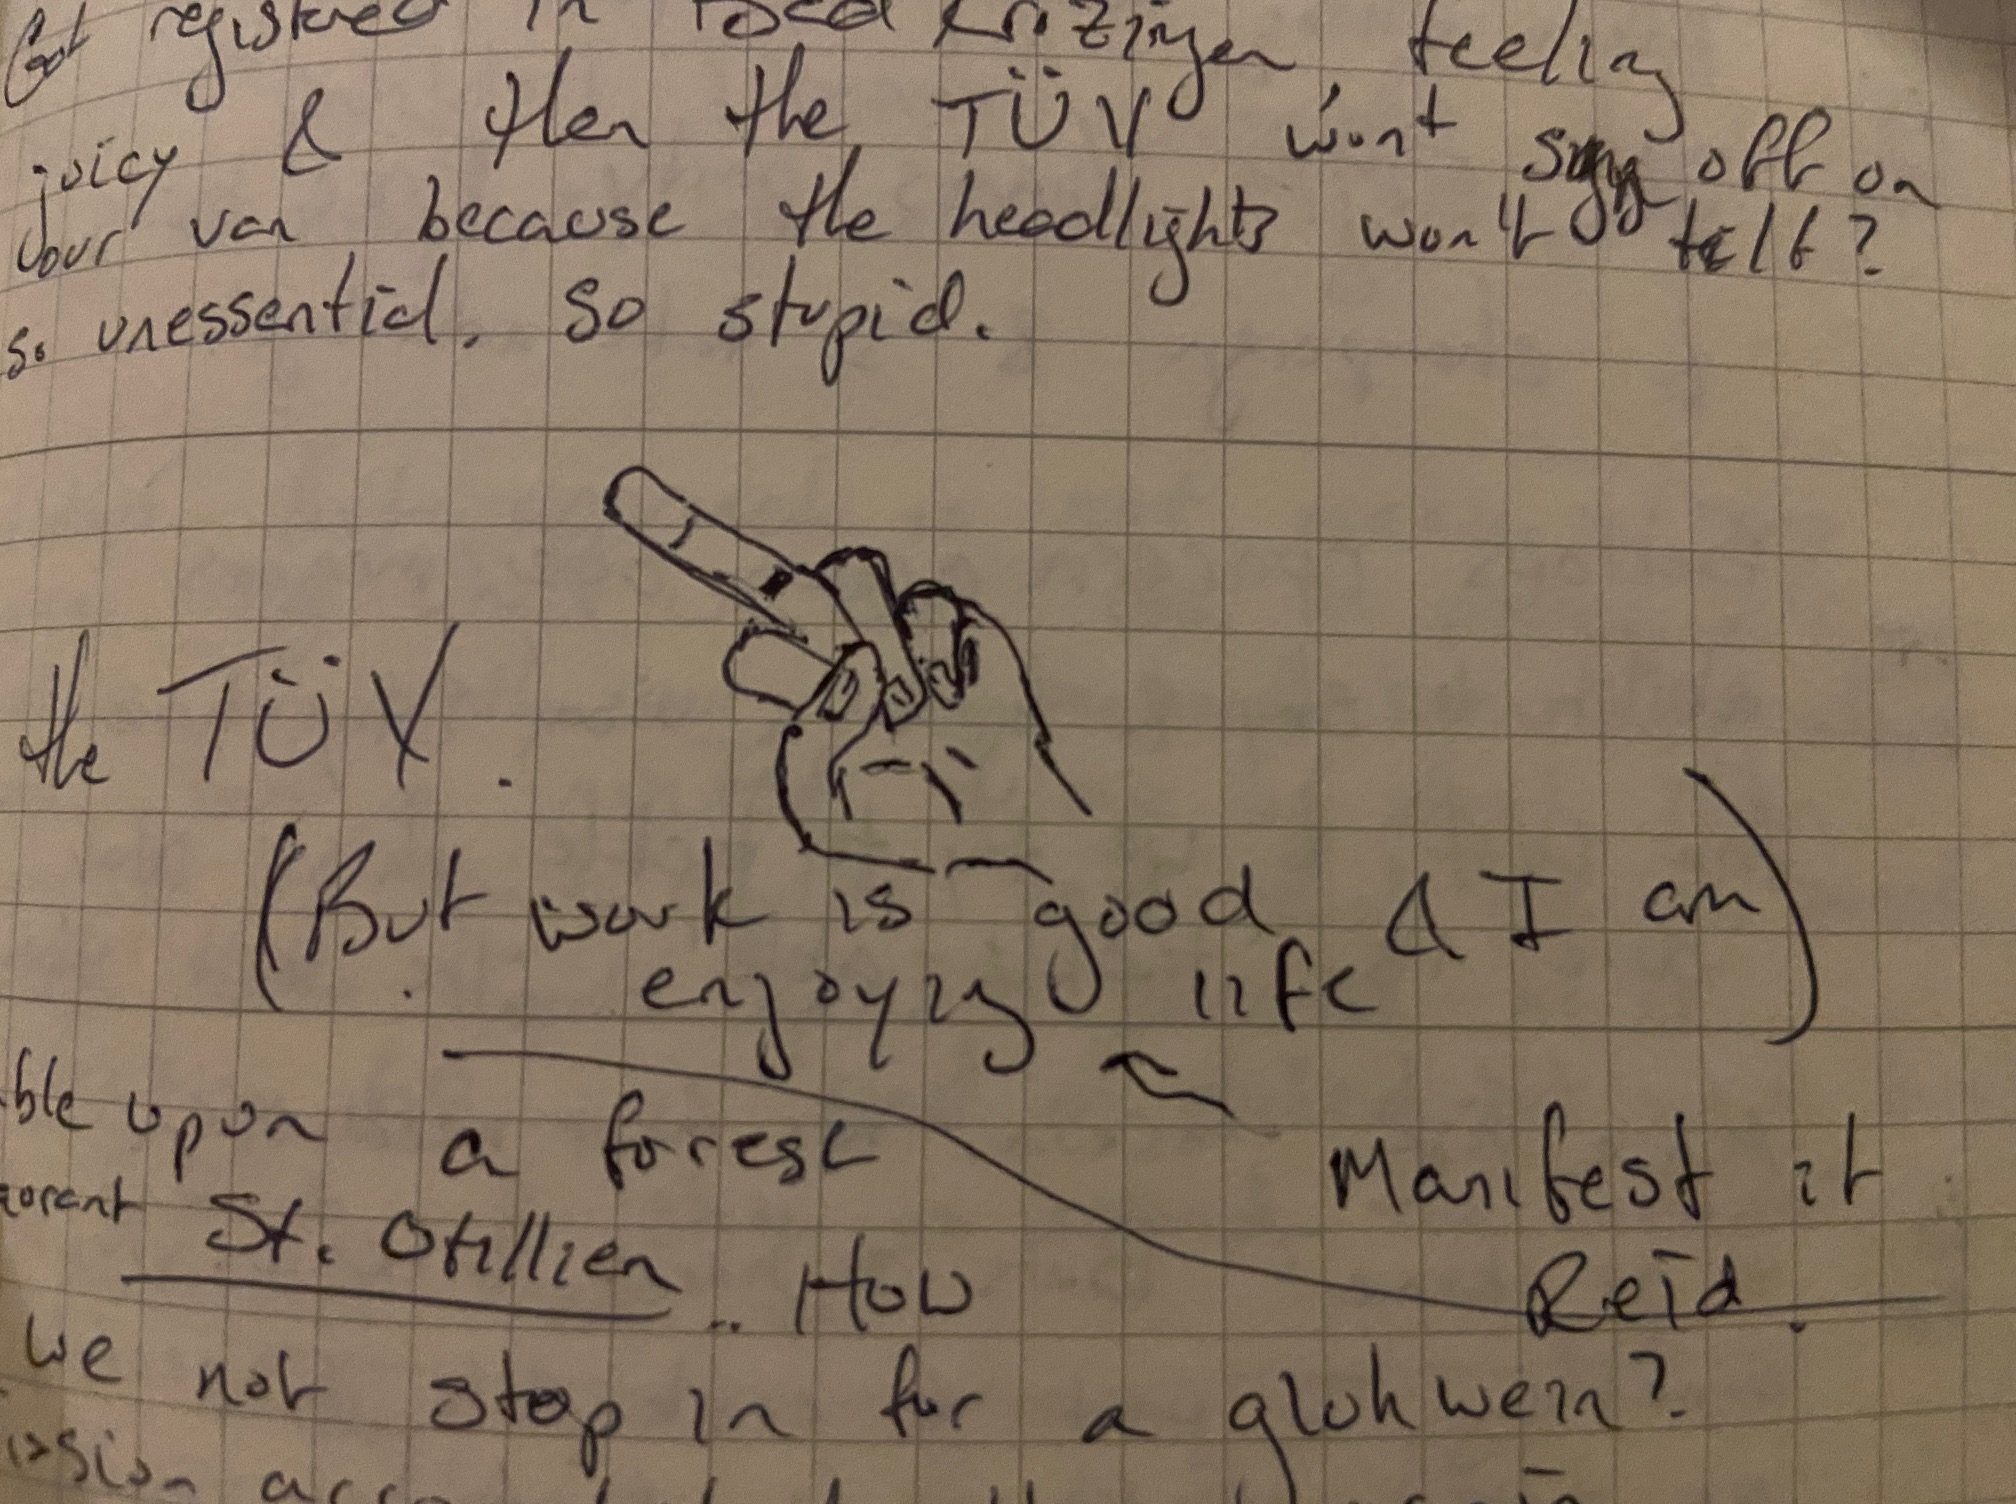 Got registered in Bad Krozingen, feeling
juicy & then the TÜV won't sign off on
our van because the headlights won't tilt?
So unessential. So stupid.
the TÜV.
(But work is good & I am
enjoying life)
Manifest it
Reid.
upon a forest
St. Otillien.. How
we not stop in for a gluhwein?